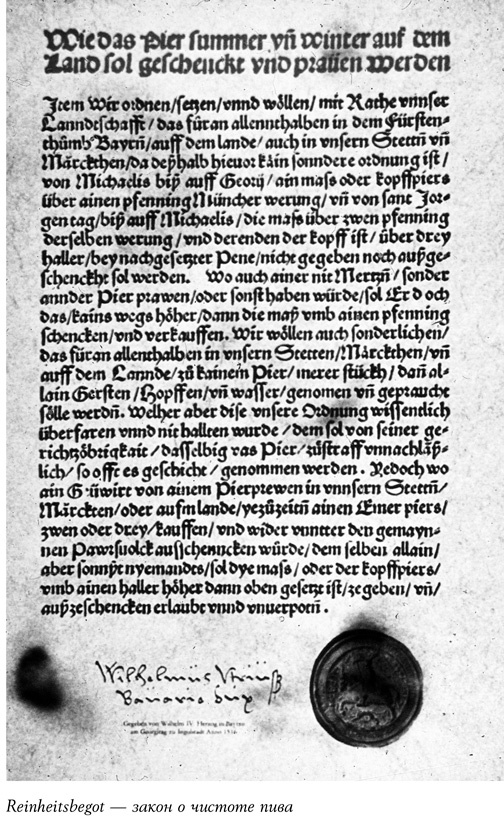 Wie das Pier summer vñ winter auf dem
Land sol geschenckt vnd prauen werden
Item Wir ordnen/setzen/vnnd wöllen/mit Rathe vnnser
Lanndtschafft/das füran allennthalben in dem Fürsten-
thůmb Bayrn/auff dem lande/auch in vnsern Stettñ vñ
Märckthen/da deßhalb hieuor kain sonndere ordnung ist/
von Michaelis biß auff Georij/ain mass oder kopffpiers
über ainen pfenning Müncher werung/vñ von sant Jor-
gen tag/biß auff Michaelis/die mass über zwen pfenning
derselben werung/vnd derenden der kopff ist/über drey
haller/bey nachgesetzter Pene/nicht gegeben noch außge-
schenckht sol werden. Wo auch ainer nit Mertzñ/sonder
annder Pier prawen/oder sonst haben würde/sol Er doch
das/kains wegs höher/dann die maß vmb ainen pfenning
schencken/vnd verkauffen. Wir wöllen auch sonderlichen/
das füran allenthalben in vnsern Stetten/Märckthen/vñ
auff dem Lannde/zů kainem Pier/merer stückh/dañ al-
lain Gersten/Hopffen/vñ wasser/genomen vñ geprauche
sölle werdñ. Welher aber dise vnsere Ordnung wissentlich
überfaren vnnd nit hallten wurde/dem sol von seiner ge-
richtzöbrigkait/dasselbig vas Pier/zůstraff vnnachläß-
lich/so offt es geschicht/genommen werden. Yedoch wo
ain Güwirt von ainem Pierprewen in vnnsern Stettñ/
Märckten/oder aufm lande/yezůzeitñ ainen Emer piers/
zwen oder drey/kauffen/vnd wider vnntter den gemayn-
nen Pawrsuolck ausschenncken würde/dem selben allain/
aber sonnßt nyemandts/sol dye mass/oder der kopffpiers/
vmb ainen haller höher dann oben gesetzt ist/ze geben/vñ/
außzeschencken erlaubt vnnd vnuerpotñ.
Wilhelmus
Bavarie dux
Gegeben von Wilhelm IV. Herzog in Bayern
am Georgitag zu Ingolstadt Anno 1516
Reinheitsbegot — закон о чистоте пива